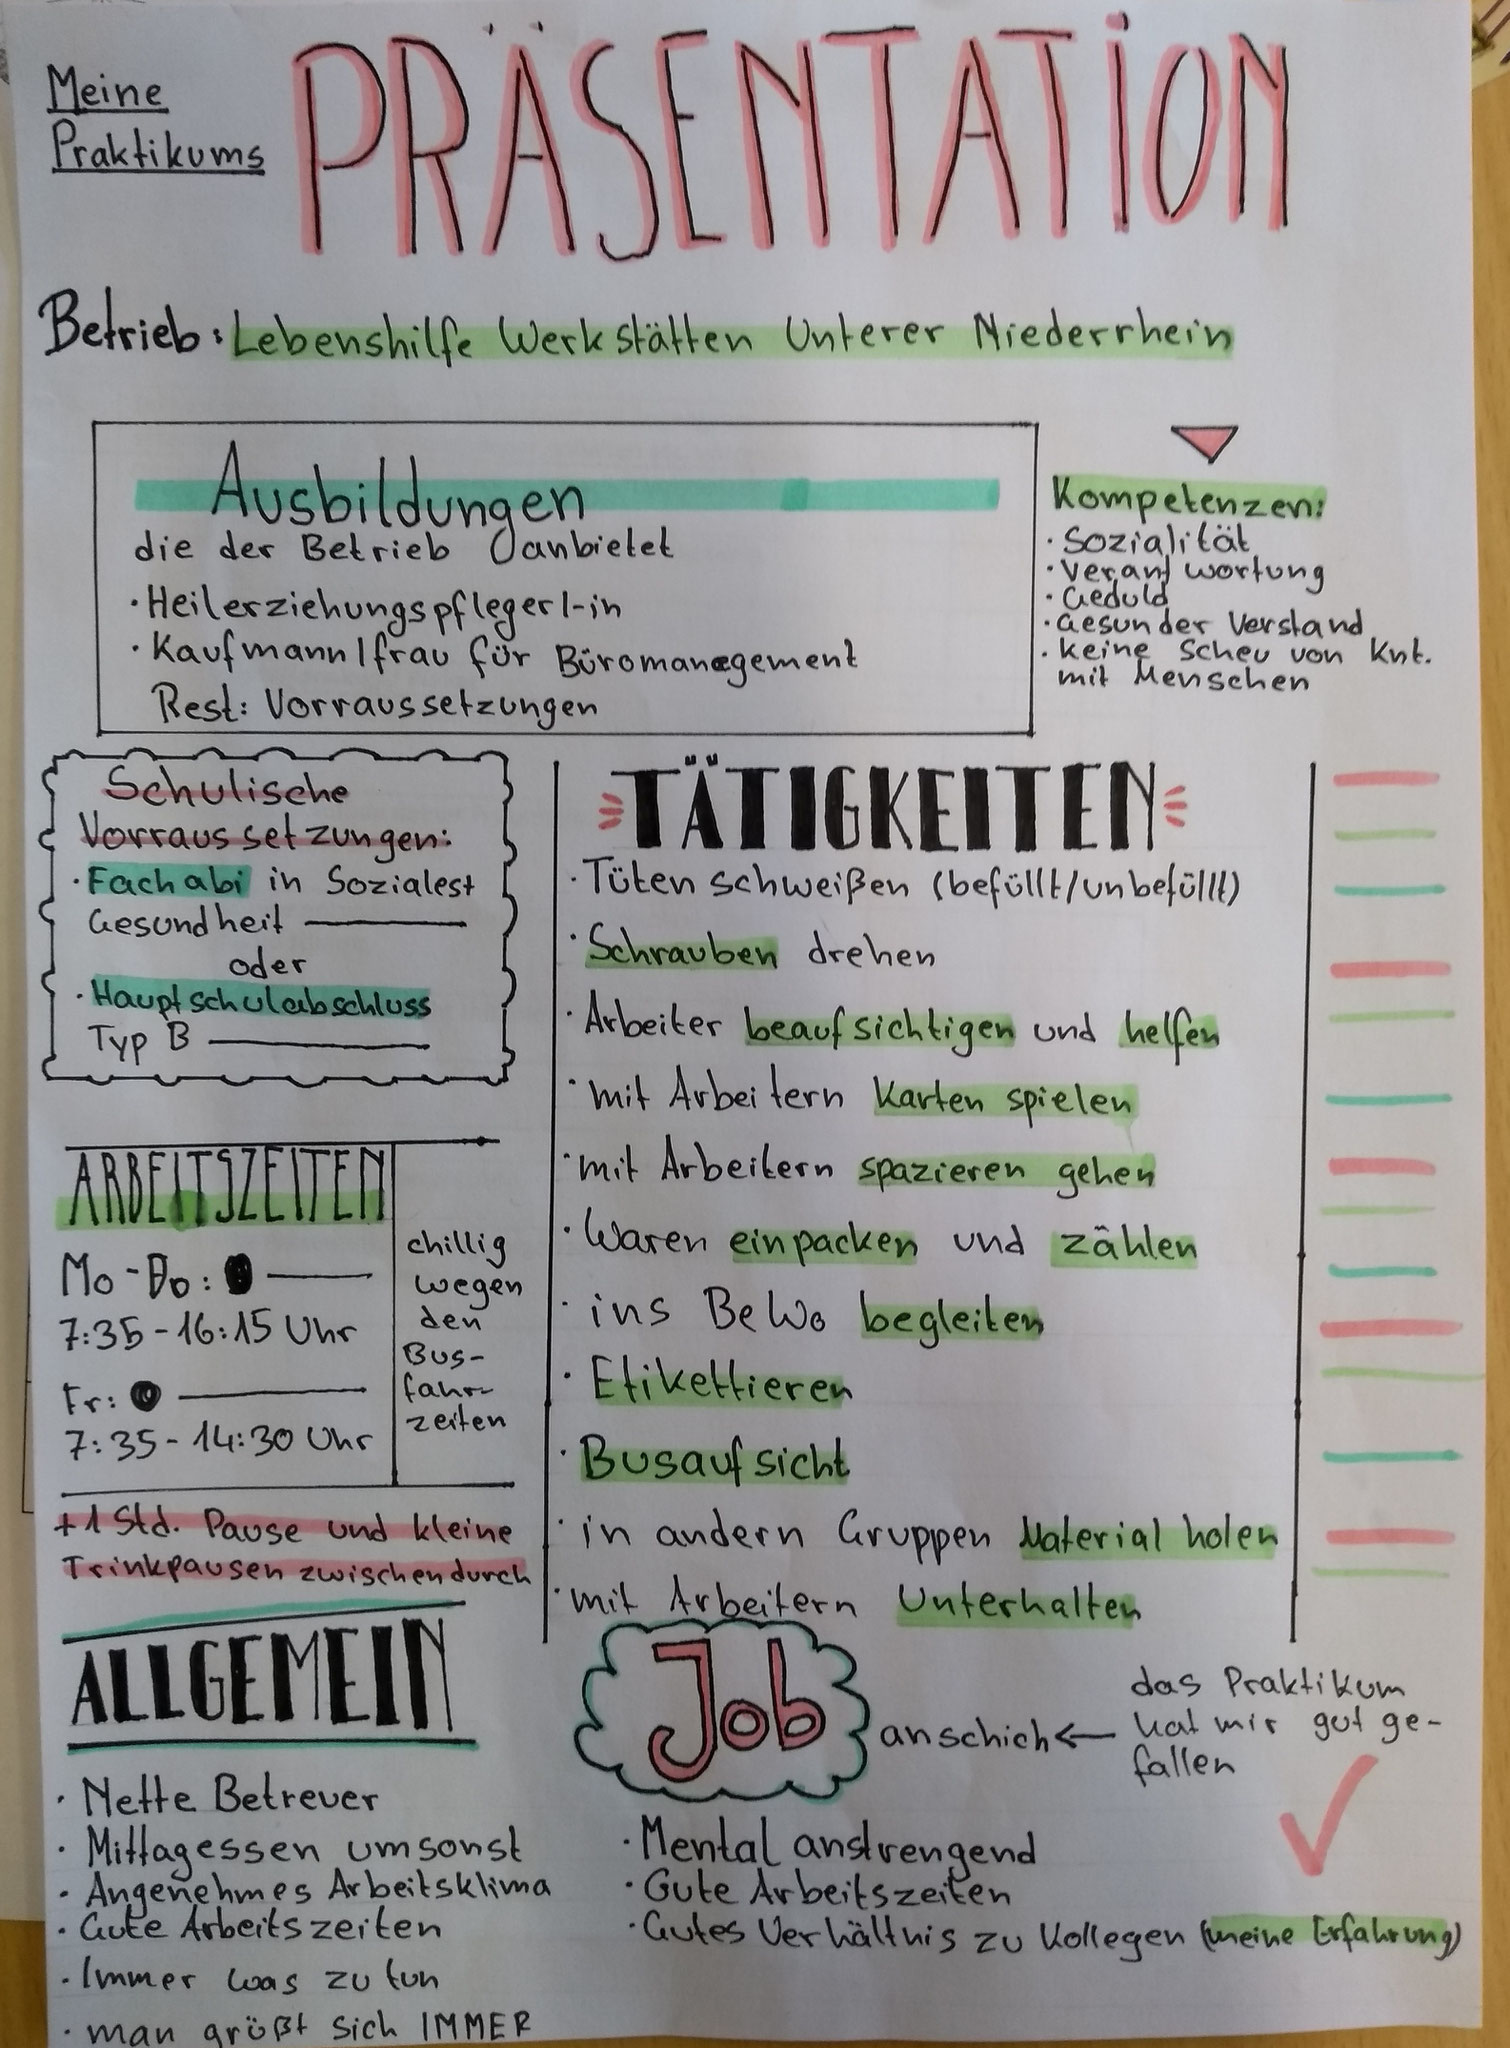 Meine
Praktikums
PRÄSENTATION
Betrieb: Lebenshilfe Werkstätten Unterer Niederrhein
Ausbildungen
die der Betrieb anbietet
· Heilerziehungspfleger/-in
· Kaufmann/frau für Büromanagement
Rest: Vorraussetzungen
Kompetenzen:
· Sozialität
· Verantwortung
· Geduld
· Gesunder Verstand
· keine Scheu von Knt.
mit Menschen
Schulische
Vorraussetzungen:
· Fachabi in Soziales+
Gesundheit
oder
· Hauptschulabschluss
Typ B
ARBEITSZEITEN
Mo-Do:
7:35-16:15 Uhr
Fr:
7:35-14:30 Uhr
chillig
wegen
den
Bus-
fahr-
zeiten
+1 Std. Pause und kleine
Trinkpausen zwischendurch
TÄTIGKEITEN
· Tüten schweißen (befüllt/unbefüllt)
· Schrauben drehen
· Arbeiter beaufsichtigen und helfen
· mit Arbeitern Karten spielen
· mit Arbeitern spazieren gehen
· Waren einpacken und zählen
· ins BeWo begleiten
· Etikettieren
· Busaufsicht
· in andern Gruppen Material holen
· mit Arbeitern Unterhalten
ALLGEMEIN
· Nette Betreuer
· Mittagessen umsonst
· Angenehmes Arbeitsklima
· Gute Arbeitszeiten
· Immer was zu tun
· man grüßt sich IMMER
Job anschich ← das Praktikum
hat mir gut ge-
fallen
· Mental anstrengend
· Gute Arbeitszeiten
· Gutes Verhältnis zu Kollegen (meine Erfahrung)